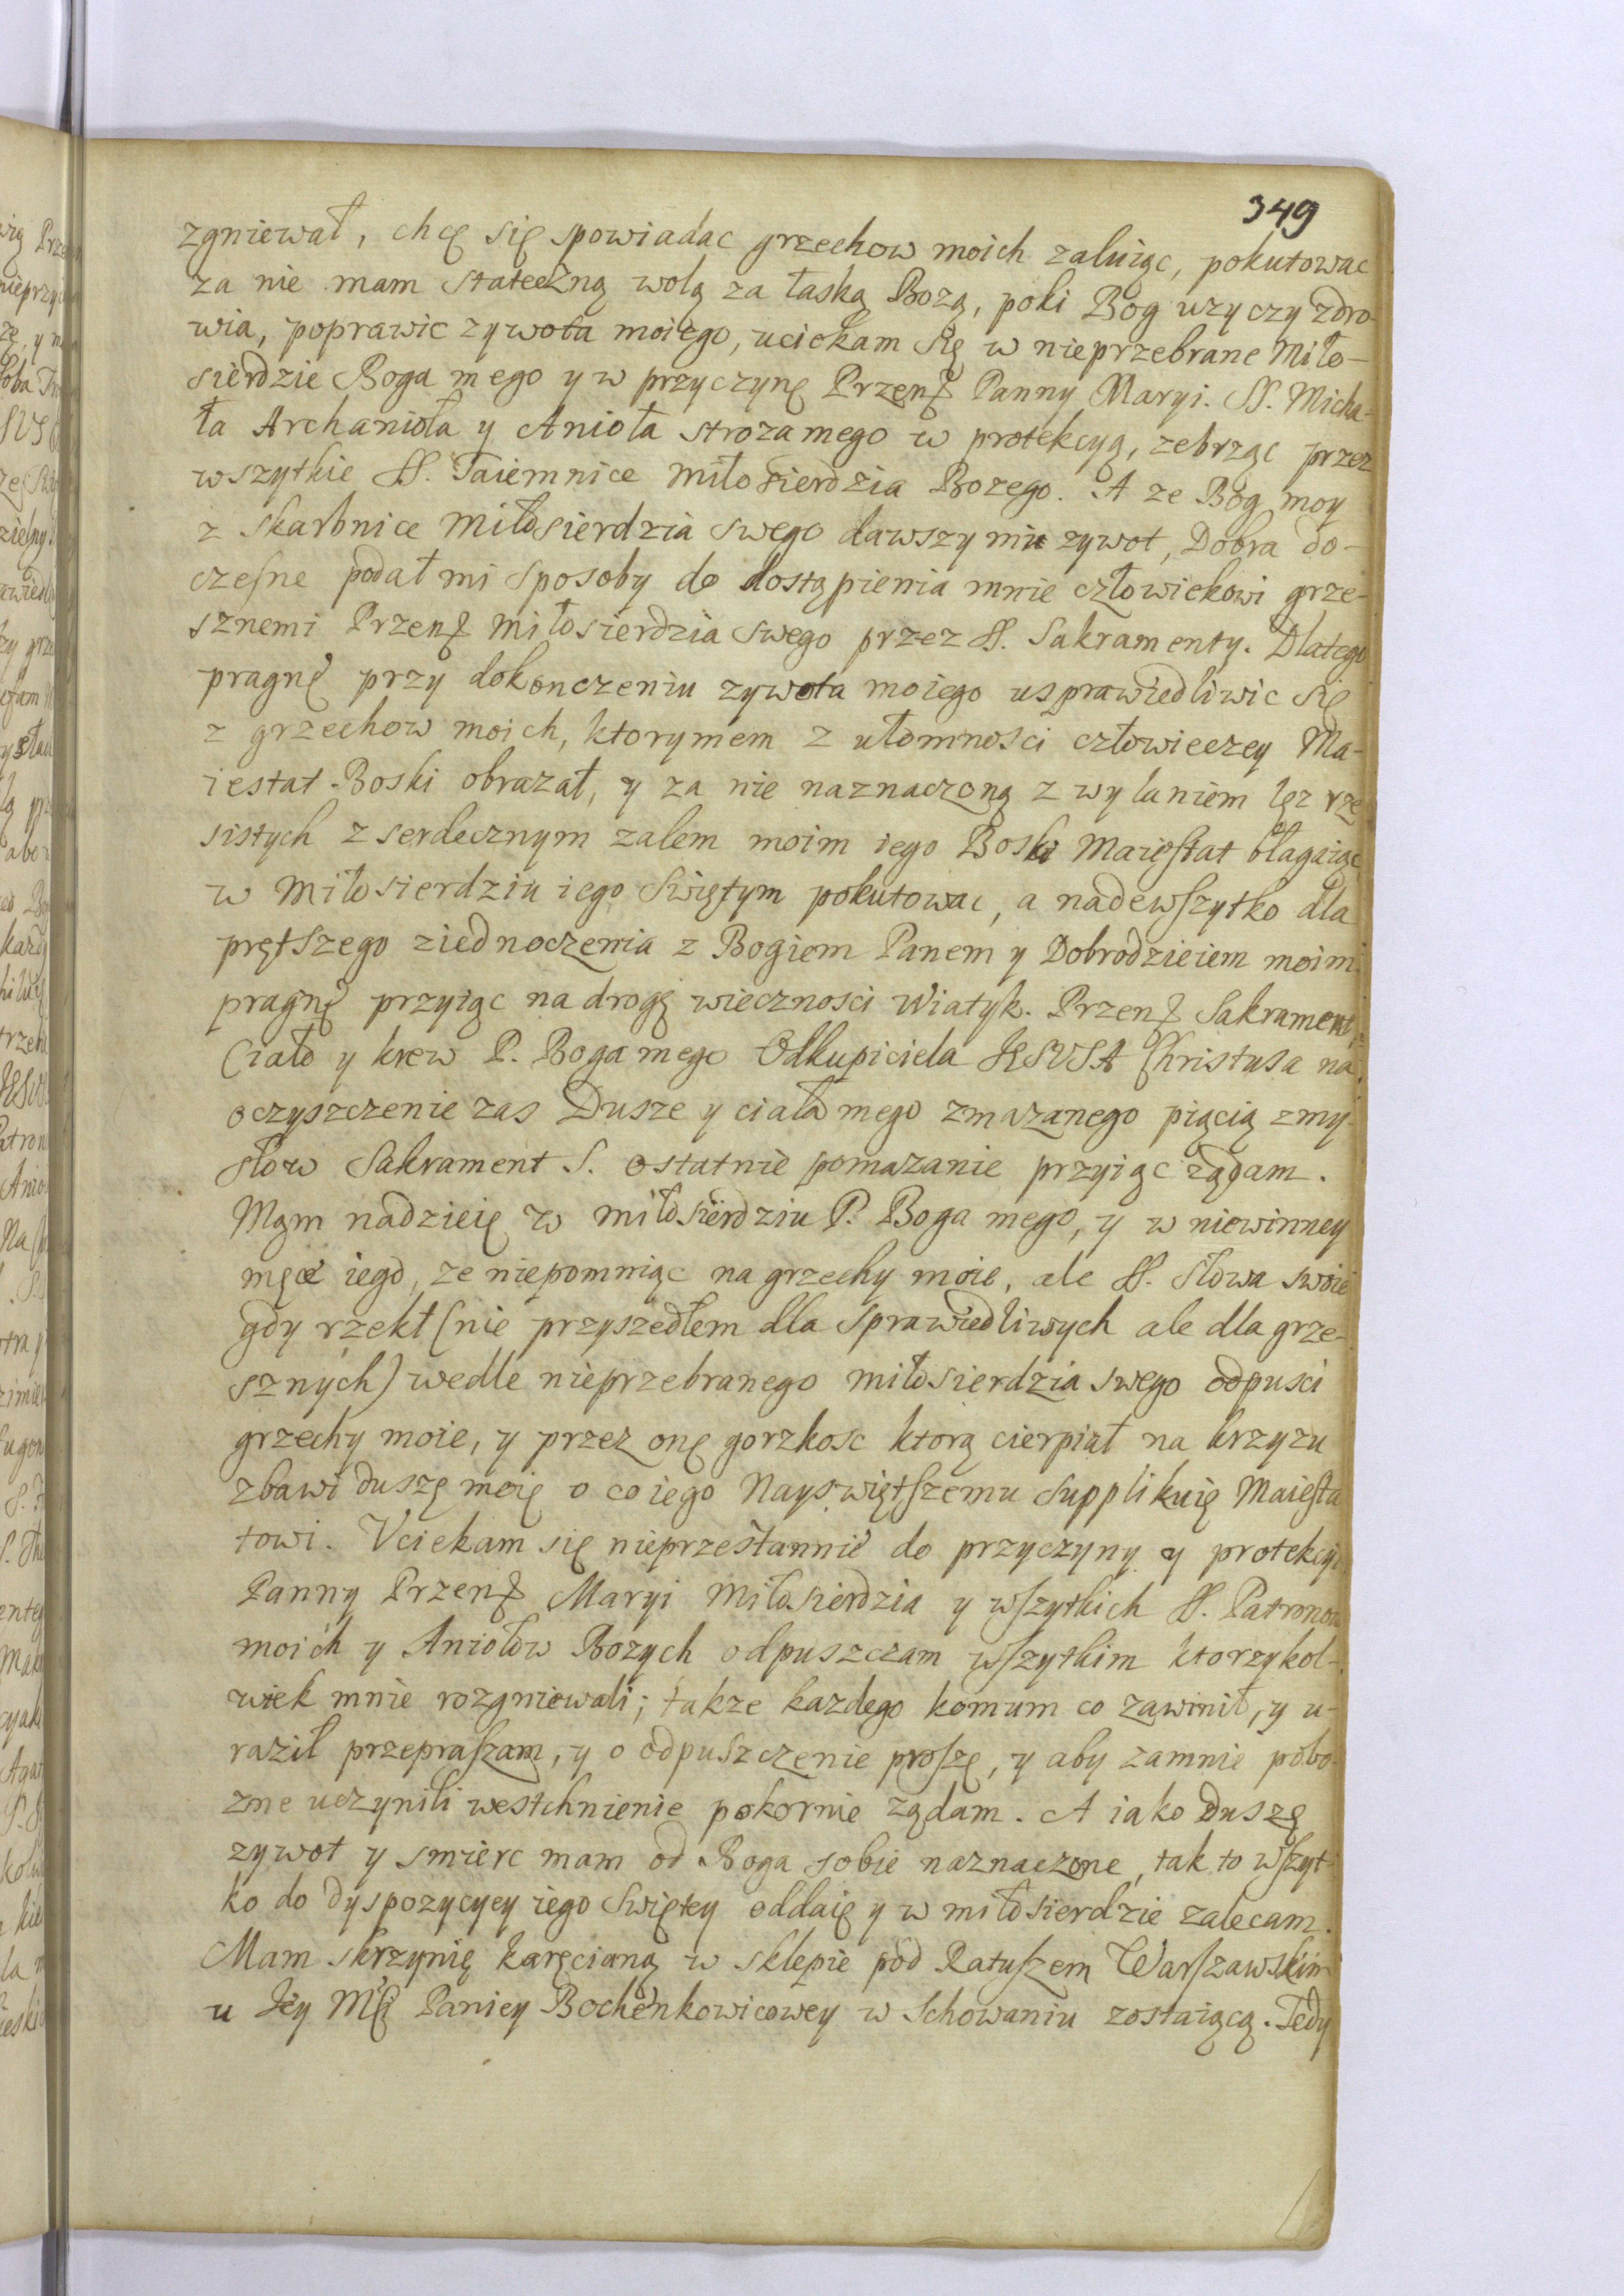 349
zgniewał, chcę się spowiadac grzechow moich zaluiąc, pokutowac
za nie mam stateczną wolą za łaską Bozą, poki Bog uzyczy zdro-
wia, poprawic zywota moiego, uciekam się w nieprzebrane Miło-
sierdzie Boga mego y w przyczynę Przenſ Panny Maryi. SS. Micha-
ła Archanioła y Anioła stroza mego w protekcyą, zebrząc przez
wszytkie SS. Taiemnice miłosierdzia Bozego. A ze Bog moy
z skarbnice Miłosierdzia swego dawszy mi zywot, Dobra do-
czeſne podał mi sposoby do dostąpienia mnie człowiekowi grze-
sznemi Przenſ miłosierdzia swego przez SS. Sakramenty. Dlatego
pragnę przy dokonczeniu zywota moiego usprawiedliwic się
z grzechow moich, ktorymem z ułomnosci człowieczey Ma-
iestat Boski obrazał, y za nie naznaczoną z wylaniem łez rzę
sistych z serdecznym zalem moim iego Boski Maieſtat błagaiąc
w Miłosierdziu iego Swiętym pokutowac, a nadewſzytko dla
prętszego ziednoczenia z Bogiem Panem y Dobrodzieiem moim
pragnę przyiąc na drogę wiecznosci Wiatyk. Przenſ Sakrament,
Ciało y krew P. Boga mego Odkupiciela JESUSA Christusa na
oczyszczenie zas Dusze y ciała mego zmazanego piącią zmy-
słow Sakrament S. ostatnie pomazanie przyiąc ządam.
Mąm nadzieię w miłosierdziu P. Boga mego, y w niewinney
męce iego, ze niepomniąc na grzechy moie, ale SS. słowa swoie
gdy rzekł (nie przyszedłem dla sprawiedliwych ale dla grze-
sznych) wedle nieprzebranego miłosierdzia swego odpusci
grzechy moie, y przez onę gorzkosc ktorą cierpiał na krzyzu
zbawi duszę moię o co iego Nayswiętſzemu supplikuię Maieſta
towi. Vciekam się nieprzestannie do przyczyny y protekcyi
Panny Przenſ Maryi Miłosierdzia y wſzytkich SS. Patronow
moich y Aniołow Bozych odpuszczam wſzytkim ktorzykol-
wiek mnie rozgniewali; takze kazdego komum co zawinił, y u-
raził przepraſzam, y o odpuszczenie proſzę, y aby zamnie pobo
zne uczynili westchnienie pokornie ządam. A iako Duszę
zywot y smierc mam od Boga sobie naznaczone, tak to wſzyt-
ko do dyspozycyey iego Swiętey oddaię y w miłosierdzie zalecam.
Mam skrzynię karęcianą w sklepie pod Ratuſzem Warſzawskim
u Jey Mſci Paniey Bochenkowicowey w Schowaniu zostaiącą. Tedy